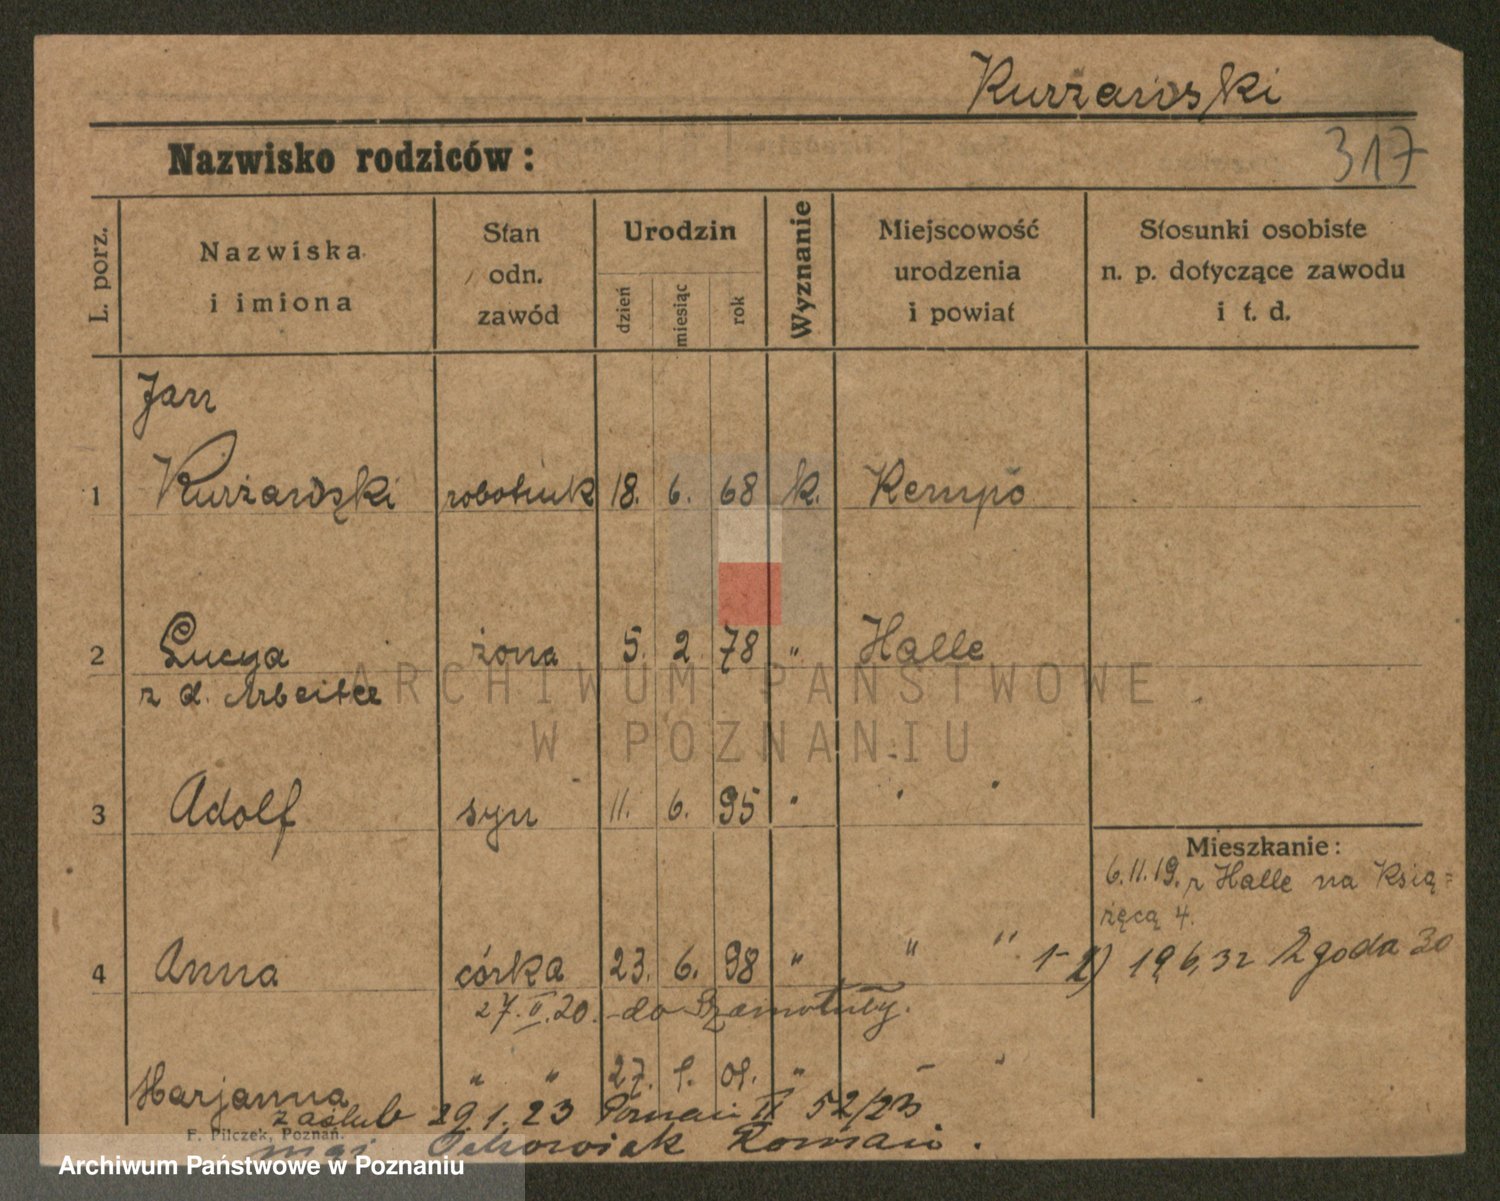 Kurzawski
Nazwisko rodziców:
317
L. porz.
Nazwiska
i imiona
Stan
odn.
zawód
Urodzin
dzień
miesiąc
rok
Wyznanie
Miejscowość
urodzenia
i powiat
Stosunki osobiste
n. p. dotyczące zawodu
i t. d.
Jan
1 Kurzawski robotnik 18. 6. 68 k. Kempo
2 Lucya żona 5. 2. 78 " Halle
z d. Arbeiter
3 Adolf syn 11. 6. 95 " " "
Mieszkanie:
6.11.19. z Halle na Ksią=
żęcą 4.
4 Anna córka 23. 6. 98 " " "
1-2) 19 6, 32 Zgoda 30
27.II.20. do Szamotuły.
Marjanna " " 27. 1. 01. "
zaślub 29.1.23 Poznań II 52/23
F. Pilczek, Poznań.
Roman.
ARCHIWUM PAŃSTWOWE
W POZNANIU
Archiwum Państwowe w Poznaniu